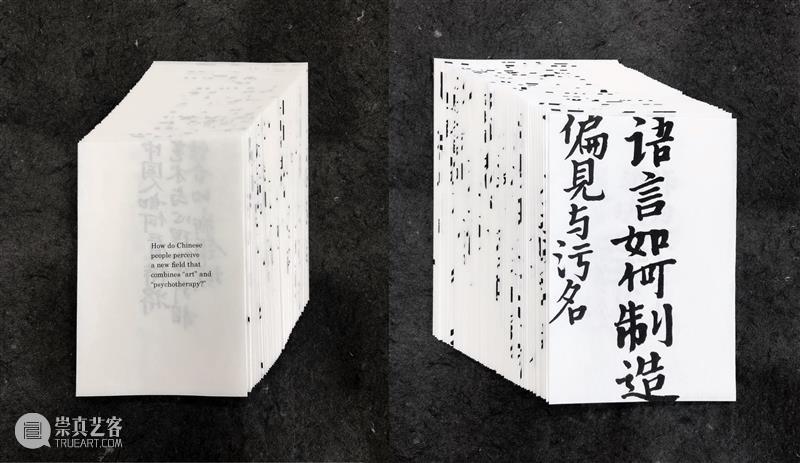 How do Chinese
people perceive
a new field that
combines “art” and
“psychotherapy?”
语言如何制造
偏見与污名
崇真艺客
TRUEART.COM